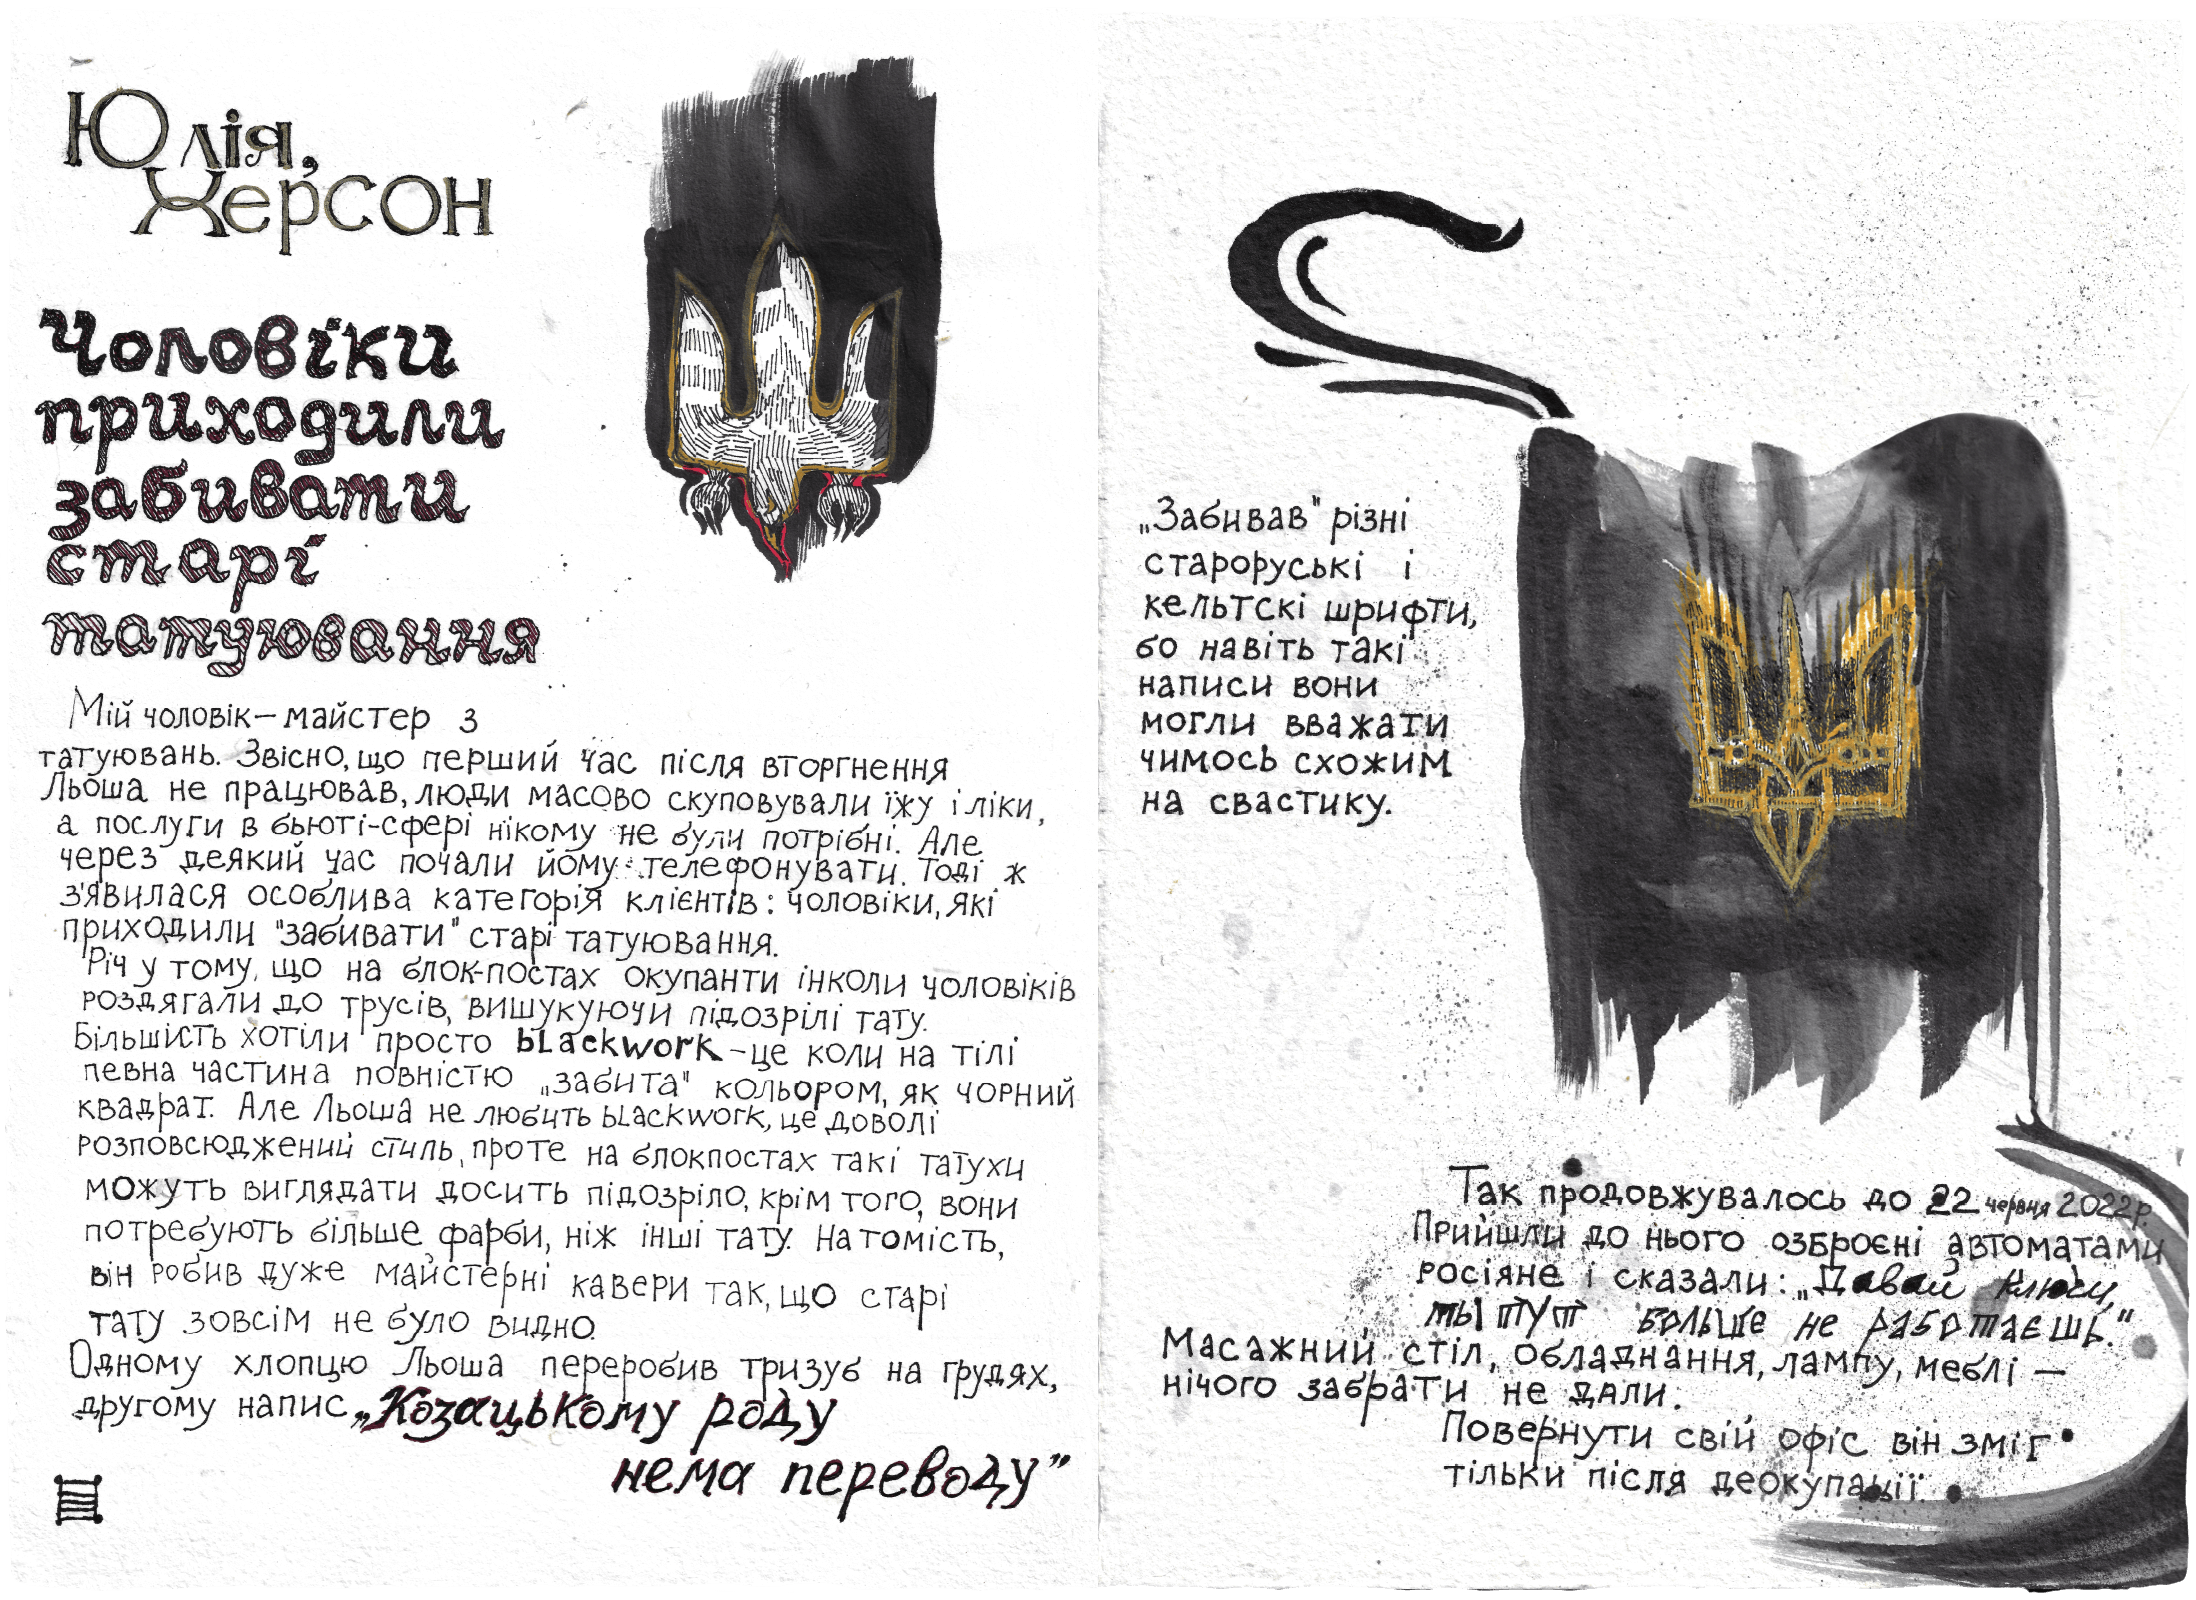 Юлія,
Херсон
Чоловіки
приходили
забивати
старі
татуювання
Мій чоловік – майстер з
татуювань. Звісно, що перший час після вторгнення
Льоша не працював, люди масово скуповували їжу і ліки,
а послуги в бьюті-сфері нікому не були потрібні. Але
через деякий час почали йому телефонувати. Тоді ж
з'явилася особлива категорія клієнтів: чоловіки, які
приходили "забивати" старі татуювання.
Річ у тому, що на блок-постах окупанти інколи чоловіків
роздягали до трусів, вишукуючи підозрілі тату.
Більшість хотіли просто bLackwork – це коли на тілі
певна частина повністю „забита" кольором, як чорний
квадрат. Але Льоша не любить bLackwork, це доволі
розповсюджений стиль, проте на блокпостах такі татухи
можуть виглядати досить підозріло, крім того, вони
потребують більше фарби, ніж інші тату. Натомість,
він робив дуже майстерні кавери так, що старі
тату зовсім не було видно.
Одному хлопцю Льоша переробив тризуб на грудях,
другому напис „Козацькому роду
нема переводу”
„Забивав" різні
староруські і
кельтскі шрифти,
бо навіть такі
написи вони
могли вважати
чимось схожим
на свастику.
Так продовжувалось до 22 червня 2022р.
Прийшли до нього озброєні автоматами
росіяне і сказали: „Давай ключи,
ты тут больше не работаєшь."
Масажний стіл, обладнання, лампу, меблі –
нічого забрати не дали.
Повернути свій офіс він зміг
тільки після деокупації.